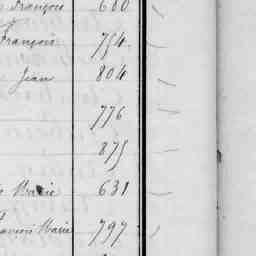 François 680
François 754
Jean 804
776
875
Marie 631
François Marie 797